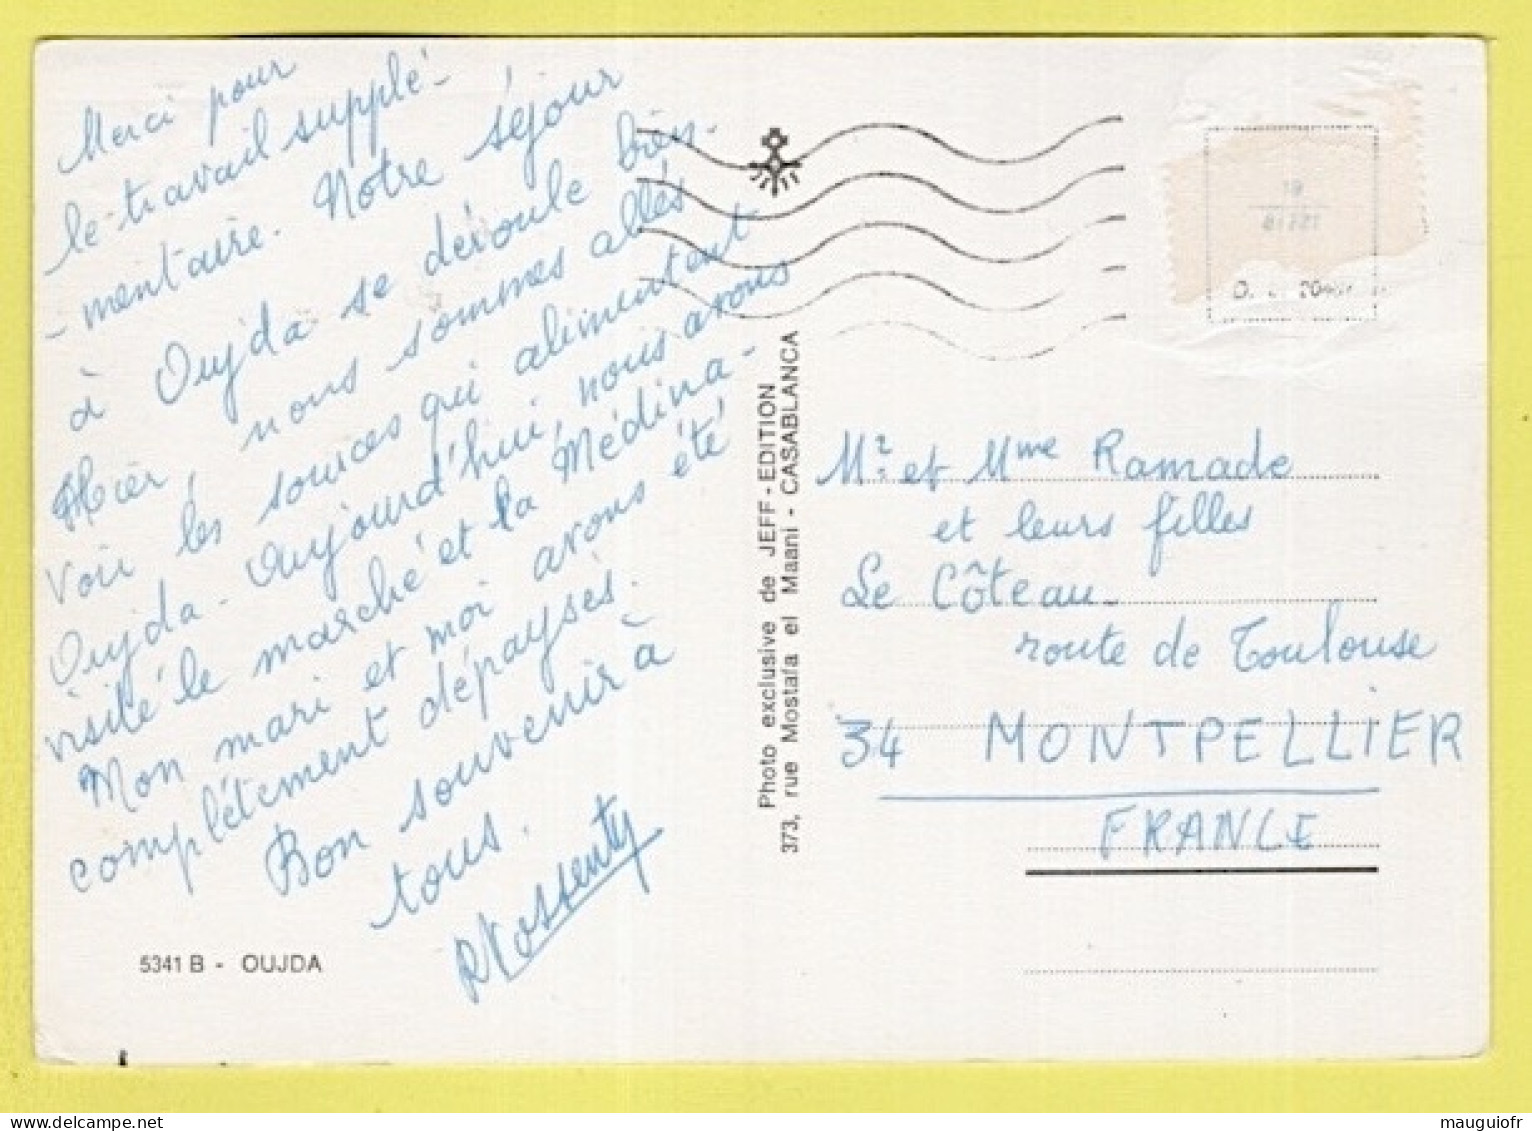 Merci pour
le travail supplé-
-mentaire. Notre séjour
à Oujda se déroule bien.
Hier, nous sommes allés
voir les sources qui alimentent
Oujda. Aujourd'hui, nous avons
visité le marché et la Médina.
Mon mari et moi avons été
complètement dépaysés.
Bon souvenir à
tous.
5341 B - OUJDA
Photo exclusive de JEFF-EDITION
373, rue Mostafa el Maani - CASABLANCA
Mr. et Mme Ramade
et leurs filles
Le Côteau
route de Toulouse
34 MONTPELLIER
FRANCE
mauguiofr